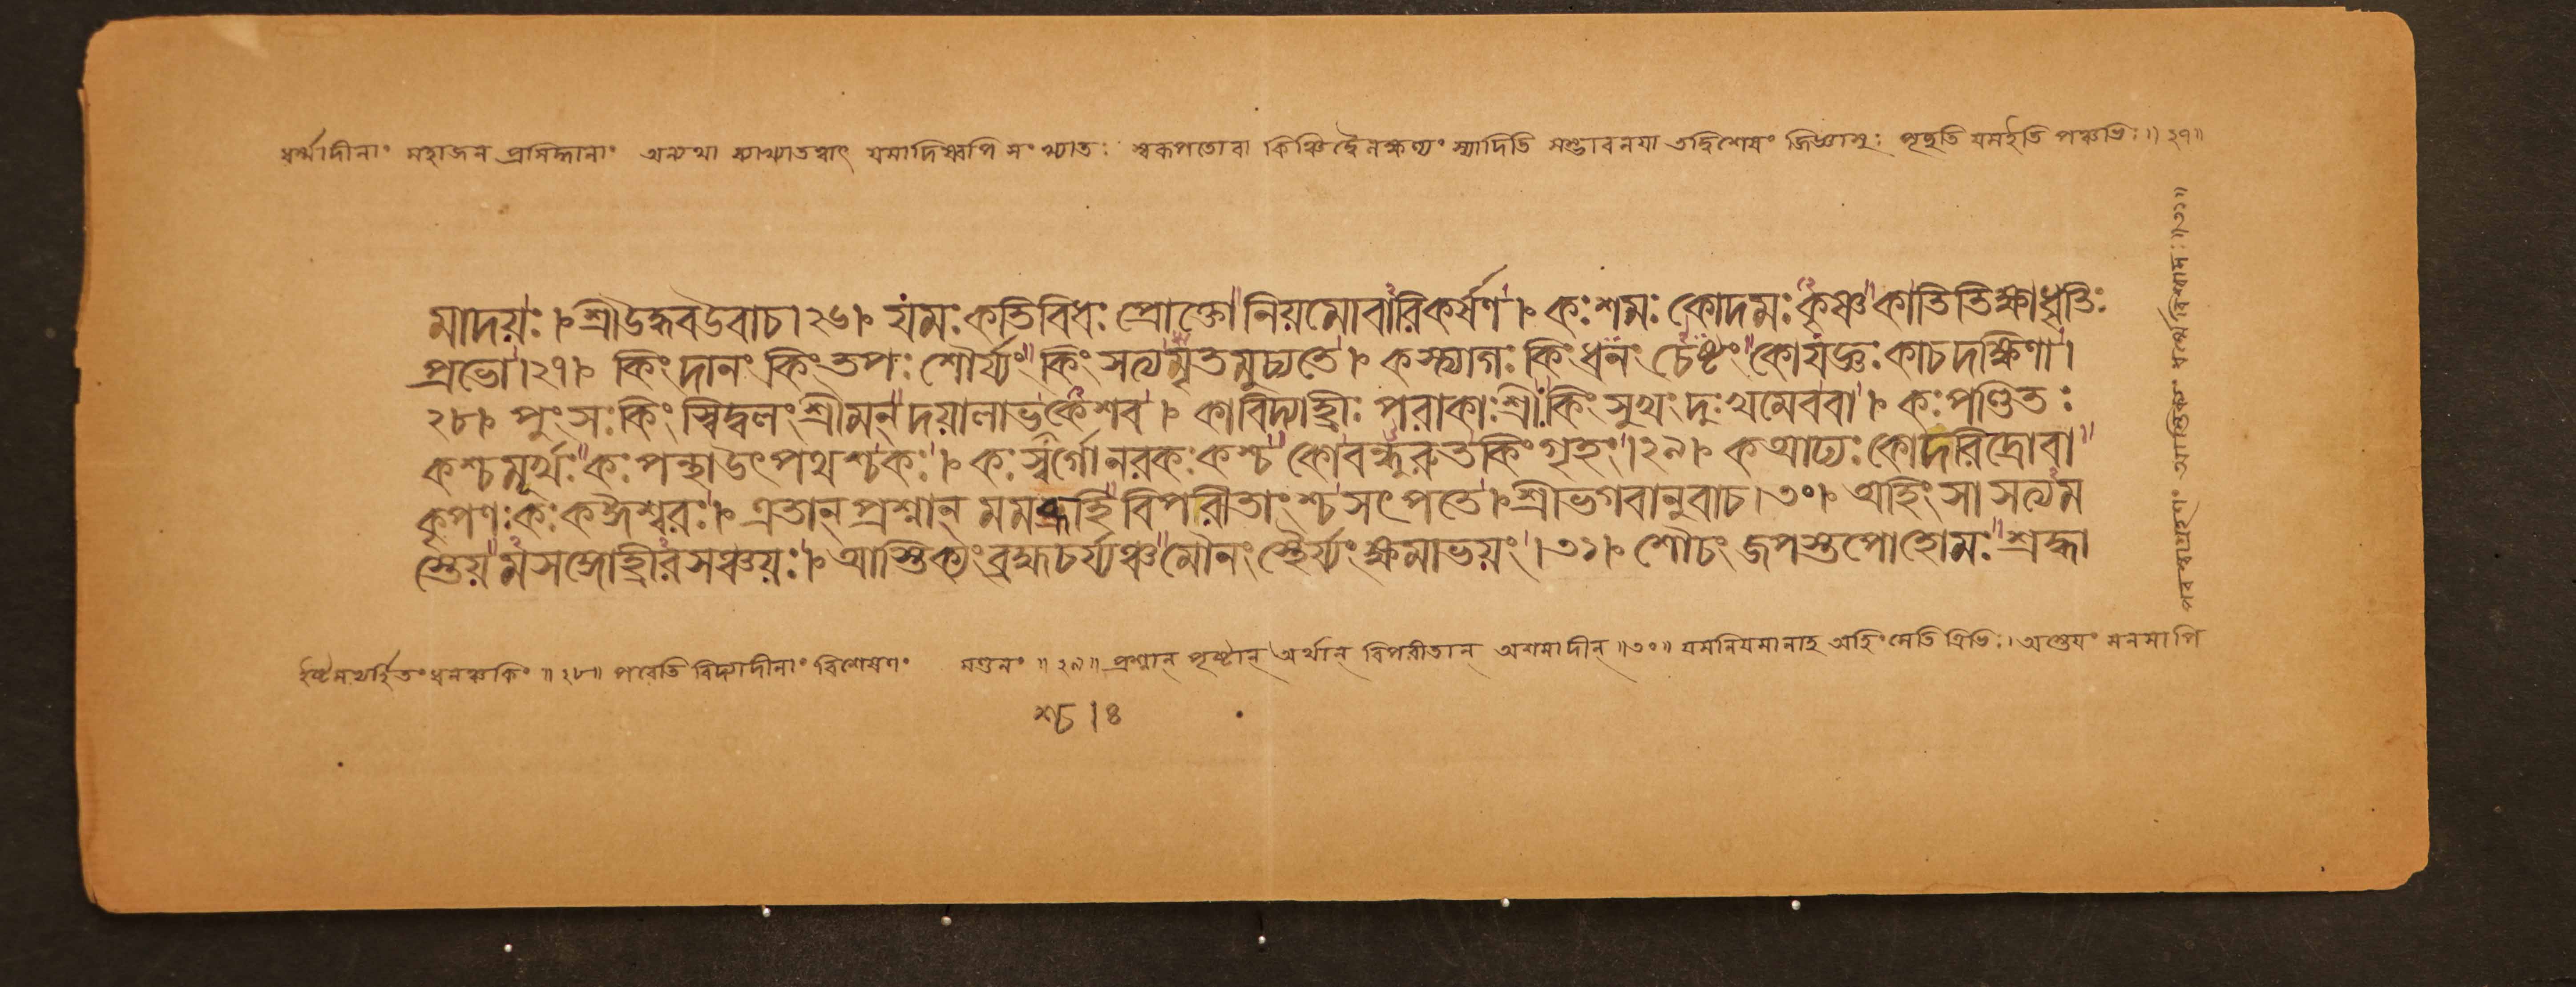 ধর্ম্মাদীনাং মহাজন প্রসিদ্ধানাং অন্যথা ব্যাখ্যাতত্বাৎ যমাদিষ্বপি সংখ্যাতঃ স্বরূপতোবা কিঞ্চিদ্বৈলক্ষণ্যং স্যাদিতি সম্ভাবনয়া তদ্বিশেষং জিজ্ঞাসুঃ পৃচ্ছতি যমইতি পঞ্চভিঃ॥২৭॥
মাদয়ঃ।৮শ্রীউদ্ধবউবাচ।২৬।৮ যমঃকতিবিধঃ প্রোক্তো নিয়মোবারিকর্ষণ।৮ কঃশমঃ কোদমঃকৃষ্ণ কাতিতিক্ষাধৃতিঃ
প্রভো।২৭।৮ কিংদানং কিংতপঃ শৌর্য্যং কিং সত্যমৃতমুচ্যতে।৮ কস্ত্যাগঃ কিংধনং চেষ্টং কোযজ্ঞঃ কাচদক্ষিণা।
২৮।৮ পুংসঃকিং স্বিদ্বলং শ্রীমন্ দয়ালাভকেশব।৮ কাবিদ্যাহ্রীঃ পরাকাঃশ্রীঃ কিংসুখং দুঃখমেববা।৮ কঃপণ্ডিতঃ
কশ্চমূর্খঃ কঃপন্থাউৎপথশ্চকঃ।৮ কঃস্বর্গোনরকঃকশ্চ কোবন্ধুরুতকিংগৃহং।২৯।৮ কআঢ্যঃকোদরিদ্রোবা
কৃপণঃকঃকঈশ্বরঃ।৮ এতান্ প্রশ্নান্ মমব্রূহি বিপরীতাংশ্চ সৎপতে।৮শ্রীভগবানুবাচ।৩০।৮ অহিংসা সত্যম
স্তেয়মসঙ্গোহ্রীরসঞ্চয়ঃ।৮আস্তিক্যংব্রহ্মচর্য্যঞ্চ মৌনংস্থৈর্য্যং ক্ষমাভয়ং।৩১।৮ শৌচং জপস্তপোহোমঃ শ্রদ্ধা
আস্তিক্যং ধর্ম্মে বিশ্বাসঃ॥৩১॥
ধনঞ্চকিং॥২৮॥ পরেতি বিদ্যাদীনাং বিশেষণং মণ্ডনং॥২৯॥ প্রশ্নান্ পৃষ্টান্ অর্থান্ বিপরীতান্ অশমাদীন্॥৩০॥ যমনিয়মানাহ অহিংসেতি ত্রিভিঃ। অস্তেয়ং মনসাপি